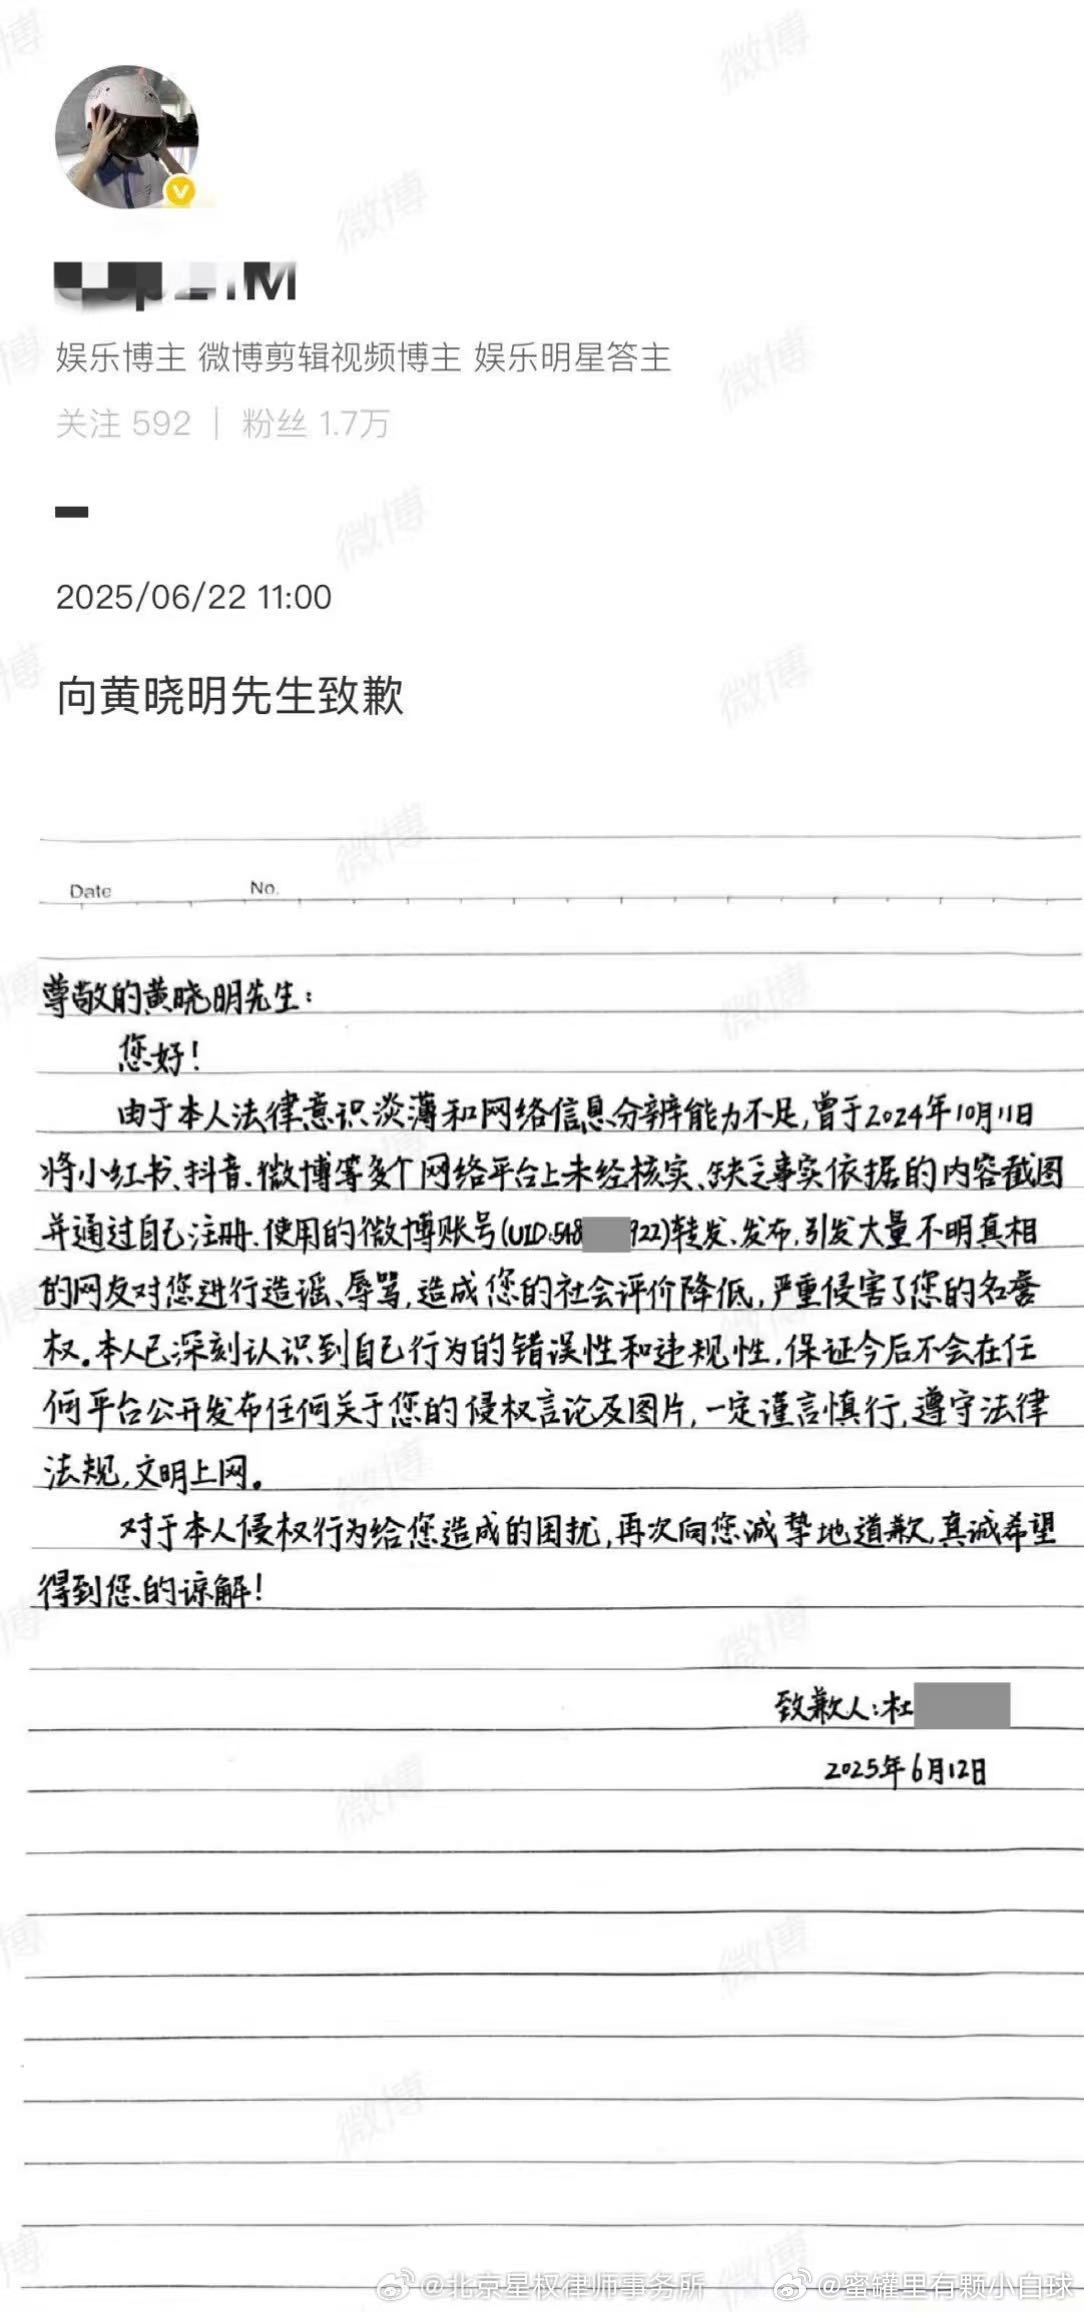 娱乐博主 微博剪辑视频博主 娱乐明星答主
关注 592 | 粉丝 1.7万
2025/06/22 11:00
向黄晓明先生致歉
Date No.
尊敬的黄晓明先生:
您好!
由于本人法律意识淡薄和网络信息分辨能力不足,曾于2024年10月11日
将小红书、抖音、微博等多个网络平台上未经核实、缺乏事实依据的内容截图
并通过自己注册、使用的微博账号(UID:548 922)转发、发布,引发大量不明真相
的网友对您进行造谣、辱骂,造成您的社会评价降低,严重侵害了您的名誉
权。本人已深刻认识到自己行为的错误性和违规性,保证今后不会在任
何平台公开发布任何关于您的侵权言论及图片,一定谨言慎行,遵守法律
法规,文明上网。
对于本人侵权行为给您造成的困扰,再次向您诚挚地道歉,真诚希望
得到您的谅解!
致歉人:杜
2025年6月12日
@北京星权律师事务所 @蜜罐里有颗小白球
微博